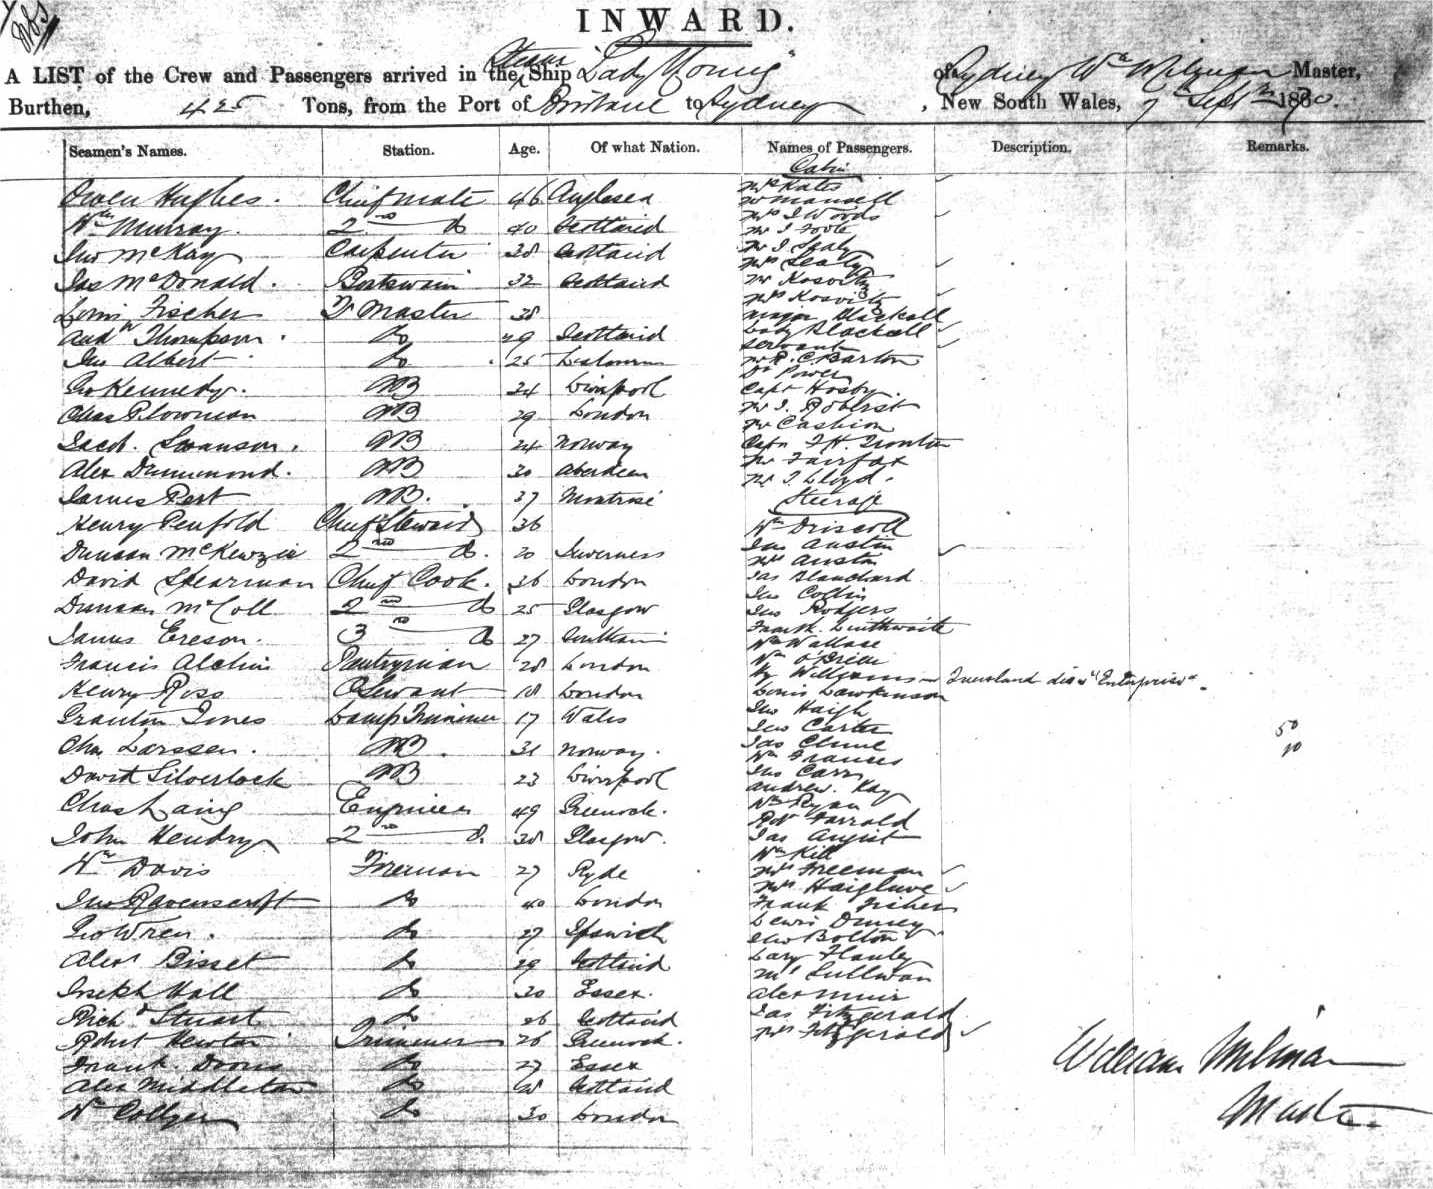 INWARD.
A LIST of the Crew and Passengers arrived in the Steam Ship "Lady Young" of Sydney Wm Milman Master,
Burthen, 425 Tons, from the Port of Brisbane to Sydney, New South Wales, 7th Sept 1870.
Seamen's Names. Station. Age. Of what Nation. Names of Passengers. Description. Remarks.
Cabin
Owen Hughes. Chief Mate 46 Anglesea
Wm Murray. 2nd do 40 Scotland
Jno McKay Carpenter 38 Scotland
Jas McDonald. Boatswain 32 Scotland
Louis Fischer Qr Master 38
Andw Thompson. do 49 Scotland
Jno Albert do 25
Geo Kennedy. AB 34 Liverpool
Chas Plowman AB 29 London
Jacob Swanson. AB 24 Norway
Alex Drummond. AB 30 Aberdeen
James Pert AB. 37 Montrose
Henry Penfold Chief Steward 36
Duncan McKenzie 2nd do. 20 Inverness
David Spearman Chief Cook. 36 London
Duncan McColl 2nd do 25 Glasgow
James Ereson. 3rd do 27
Francis Alchin Pantryman 28 London
Henry Ross Servant 18 London
Grantin Jones Lamp Trimmer 17 Wales
Chas Larssen. AB. 31 Norway.
David Silverlock AB 23 Liverpool
Chas Laing Engineer 49 Greenock.
John Hendry 2nd do. 38 Glasgow.
Wm Davis Fireman 27 Ryde
Jno Ravenscroft do 40 London
Geo Wren. do 27 Ipswich
Alexr Bisset do 29 Scotland
Joseph Hall do 30 Essex.
Richd Stuart do 26 Scotland
Robert Newton Trimmer 26 Greenock.
Frank Doorne do 27 Essex
Alex Middleton do Scotland
Wm Collyer do 30 London
Mrs Kates
Mr Mansell
Mrs J Woods
Mr J Foote
Mr J Sealy
Mrs Sealy
Mr Kosvitz
Mrs Kosvitz
Major Blackall
Lady Blackall
Servant
Mr R. C. Barton
Dr Power
Capt Hosby
Mr J. Roberst
Mr Cashion
Capn F H Trouton
Mr Fairfax
Mr J. Lloyd.
Steerage
Wm Driscoll
Jno Austin
Mrs Austin
Jas Blanchard
Jno Collin
Jno Rodgers
Frank. Linthwaite
Wm Wallace
Wm O'Brien
Hy Williams Queensland disc "Enterprise".
Louis Dawkinson
Jno Haigh
Jno Carter
Jas Clune
Wm Frances
Jno Carr
Andrew. Kay
Wm Ryan
Robt Farrald
Jas August
Wm Kill
Mrs Freeman
Mrs Haiglune
Frank Fisher
Lewis Dewey
Jno Bolton
Lary Flanley
Mr Sullivan
Alex Muir
Jas Fitzgerald
Mrs Fitzgerald
50
10
William Milman
Master.